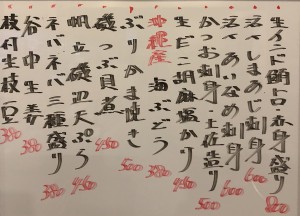 生インド鮪トロ赤身盛り 800
活〆しまあじ刺身 600
活〆あいなめ刺身 600
かつお刺身土佐造り 500
生だこ胡麻塩かり 480
沖縄産 海ぶどう 380
ぶりかま焼き 500
磯つぶ貝煮 380
帆立磯辺天ぷら 480
ネバネバ三種盛り 380
谷中生姜 380
枝付生枝豆 380